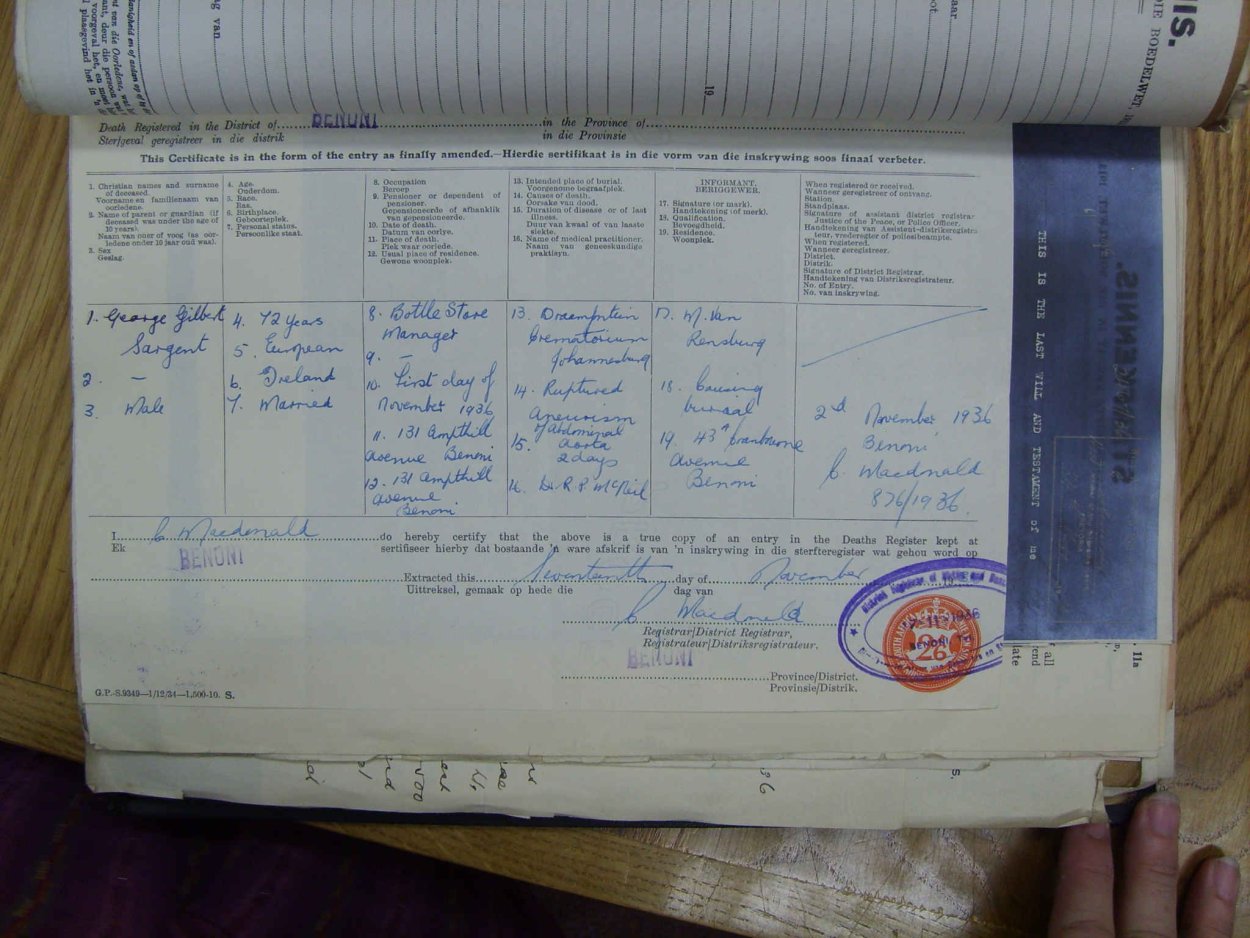 Death Registered in the District of BENONI in the Province of
Sterfgeval geregistreer in die distrik in die Provinsie
This Certificate is in the form of the entry as finally amended.—Hierdie sertifikaat is in die vorm van die inskrywing soos finaal verbeter.
1. Christian names and surname of deceased.
Voornaam en familienaam van oorledene.
2. Name of parent or guardian (if deceased was under the age of 10 years).
Naam van ouer of voog (as oorledene onder 10 jaar oud was).
3. Sex
Geslag.
4. Age.
Ouderdom.
5. Race.
Ras.
6. Birthplace.
Geboorteplek.
7. Personal status.
Persoonlike staat.
8. Occupation
Beroep
9. Pensioner or dependent of pensioner.
Gepensioeneerde of afhanklik van gepensioeneerde.
10. Date of death.
Datum van oorlye.
11. Place of death.
Plek waar oorlede.
12. Usual place of residence.
Gewone woonplek.
13. Intended place of burial.
Voorgenome begraafplek.
14. Causes of death.
Oorsake van dood.
15. Duration of disease or of last illness.
Duur van kwaal of van laaste siekte.
16. Name of medical practitioner.
Naam van geneeskundige praktisyn.
INFORMANT.
BERIGGEWER.
17. Signature (or mark).
Handtekening (of merk).
18. Qualification.
Bevoegdheid.
19. Residence.
Woonplek.
When registered or received.
Wanneer geregistreer of ontvang.
Station.
Standplaas.
Signature of assistant district registrar
Justice of the Peace, or Police Officer.
Handtekening van Assistent-distriksregistra-
teur, vrederegter of polisiebeampte.
When registered.
Wanneer geregistreer.
District.
Distrik.
Signature of District Registrar.
Handtekening van Distriksregistrateur.
No. of Entry.
No. van inskrywing.
1. George Gilbert
Sargent
2. –
3. Male
4. 72 Years
5. European
6. Ireland
7. Married
8. Bottle Store
Manager
9. –
10. First day of
November 1936
11. 131 Ampthill
Avenue Benoni
12. 131 Ampthill
Avenue
Benoni
13. Braamfontein
Crematorium
Johannesburg
14. Ruptured
Aneurism
of Abdominal
aorta
15. 2 days
16. Dr R. P. McNeil
17. M. Van
Rensburg
18. Causing
burial
19. 43A Cranbourne
Avenue
Benoni
2nd November 1936
Benoni
C. Macdonald
876/1936.
I C. Macdonald do hereby certify that the above is a true copy of an entry in the Deaths Register kept at
Ek sertifiseer hierby dat bostaande 'n ware afskrif is van 'n inskrywing in die sterfteregister wat gehou word op
BENONI
Extracted this Seventeenth day of November
Uittreksel, gemaak op hede die dag van
C. Macdonald
Registrar/District Registrar,
Registrateur/Distriksregistrateur.
BENONI
Province/District.
Provinsie/Distrik.
G.P.-S.9349—1/12/34—1,500-10. S.
BENONI
2/6
THIS IS THE LAST WILL AND TESTAMENT of me